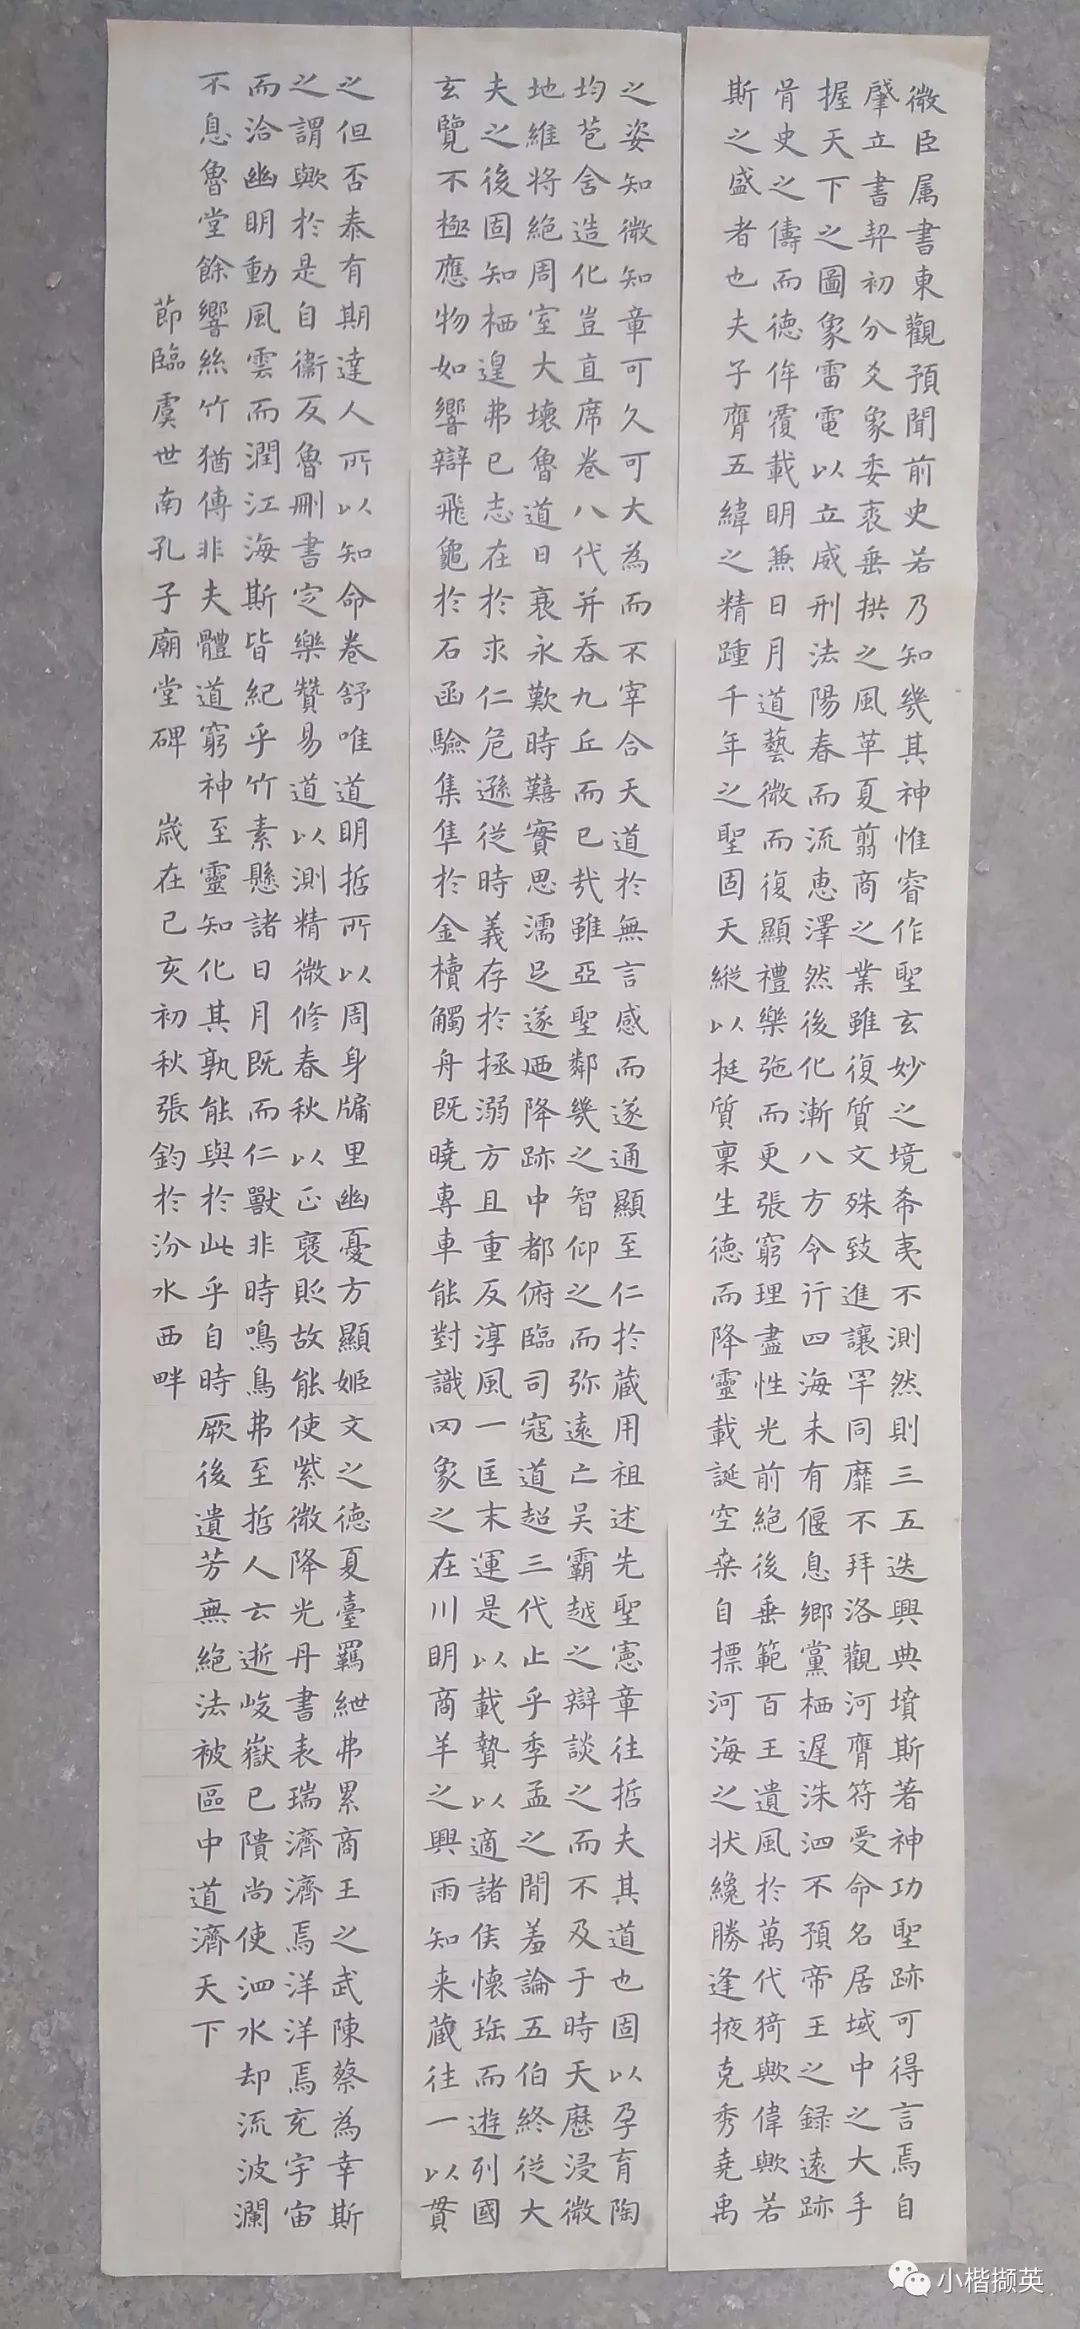 微臣属書東觀預聞前史若乃知幾其神惟睿作聖玄妙之境希夷不測然則三五迭興典墳斯著神功聖跡可得言焉自
肇立書契初分爻象委裘垂拱之風革夏翦商之業雖復質文殊致進讓罕同靡不拜洛觀河膺符受命名居域中之大手
握天下之圖象雷電以立威刑法陽春而流惠澤然後化漸八方令行四海未有偃息鄉黨栖遲洙泗不預帝王之録遠跡
胥史之儔而德侔覆載明兼日月道藝微而復顯禮樂弛而更張窮理盡性光前絶後垂範百王遺風於萬代猗歟偉歟若
斯之盛者也夫子膺五緯之精踵千年之聖固天縱以挺質稟生德而降靈載誕空桑自標河海之状纔勝逢掖克秀堯禹
之姿知微知章可久可大為而不宰合天道於無言感而遂通顯至仁於蔵用祖述先聖憲章往哲夫其道也固以孕育陶
均苞舍造化豈直席卷八代并吞九丘而已哉雖亞聖鄰幾之智仰之而弥遠亡吴霸越之辯談之而不及于時天歷浸微
地維將絕周室大壞魯道日衰永歎時囏實思濡足遂迺降跡中都俯臨司寇道超三代止乎季孟之閒羞論五伯終從大
夫之後固知栖遑弗已志在於求仁危遜從時義存於拯溺方且重反淳風一匡末運是以載贄以適諸侯懷珤而遊列國
玄覽不極應物如響辯飛龜於石函驗集隼於金櫝觸舟既曉專車能對識罔象之在川明商羊之興雨知来蔵往一以貫
之但否泰有期達人所以知命卷舒唯道明哲所以周身牖里幽憂方顯姬文之德夏臺羈紲弗累商王之武陳蔡為幸斯
之謂歟於是自衞反魯刪書定樂贊易道以測精微修春秋以正褒貶故能使紫微降光丹書表瑞濟濟焉洋洋焉充宇宙
而洽幽明動風雲而潤江海斯皆紀乎竹素懸諸日月既而仁獸非時鳴鳥弗至哲人云逝峻嶽已隤尚使泗水却流波瀾
不息魯堂餘響絲竹猶傳非夫體道窮神至靈知化其孰能與於此乎自時厥後遺芳無絕法被區中道濟天下
節臨虞世南孔子廟堂碑 歲在己亥初秋張鈞於汾水西畔
小楷撷英